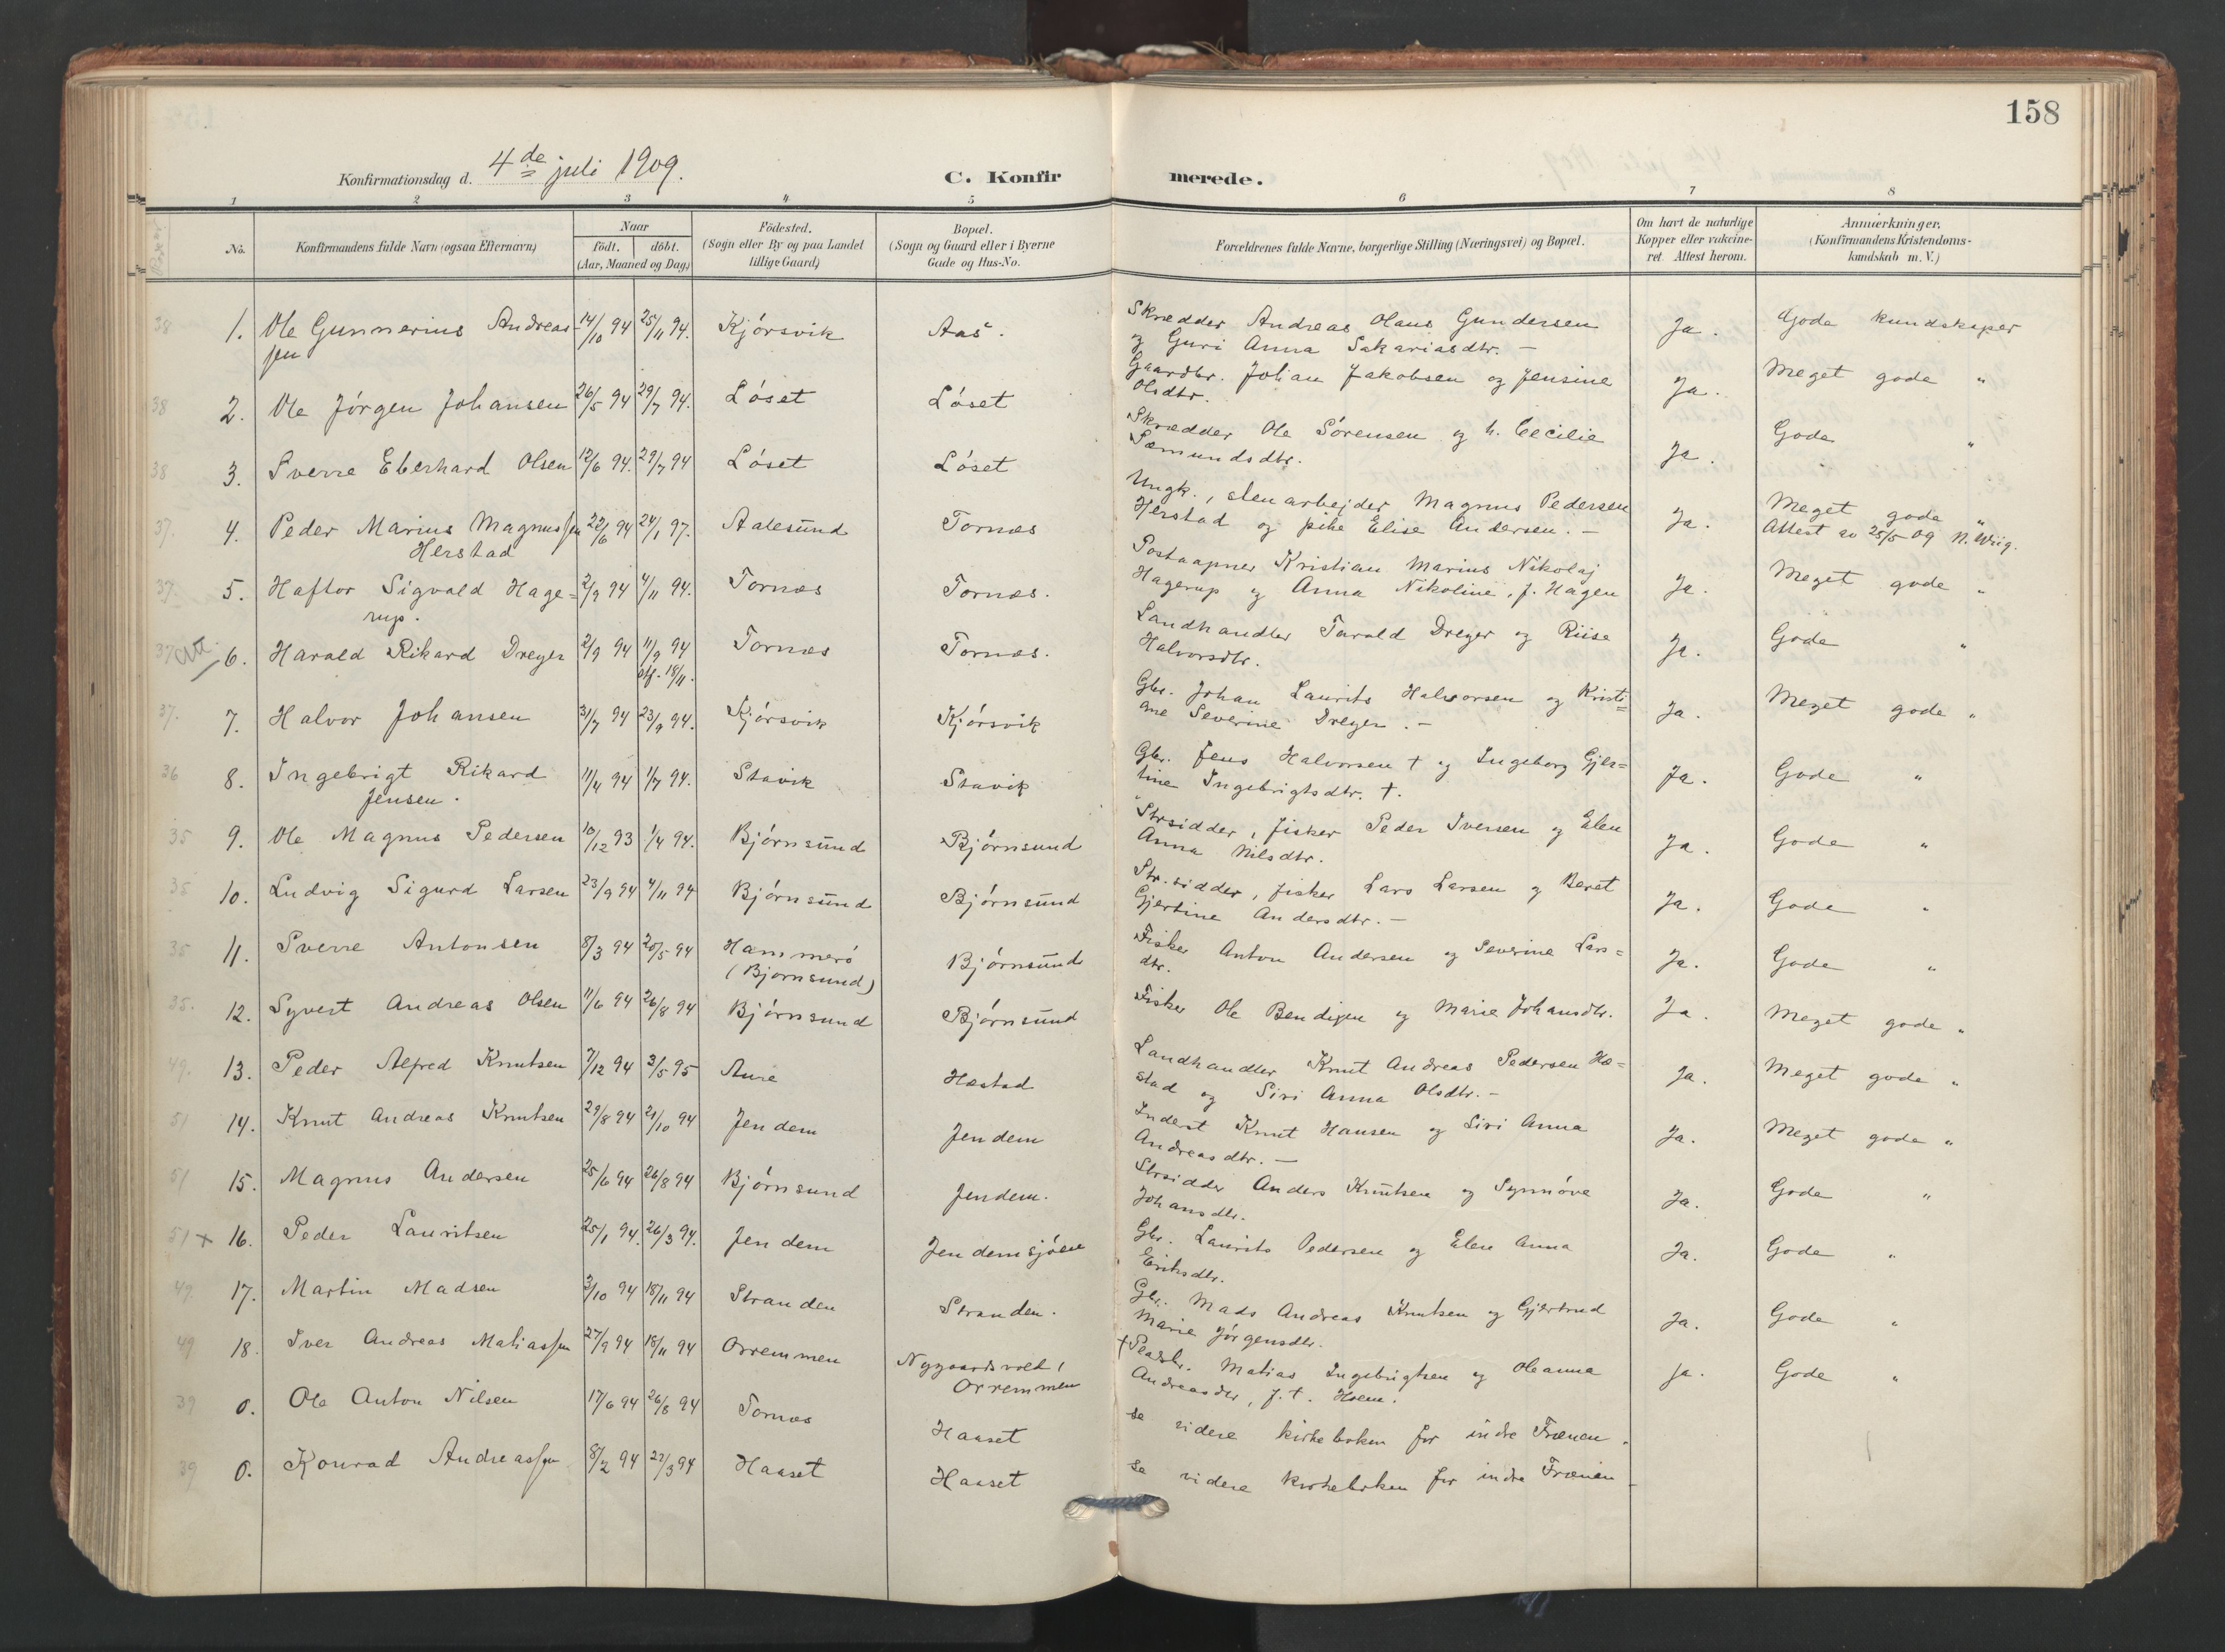 158
Konfirmationsdag d. 4de juli 1909.
C. Konfirmerede.
1 2 3 4 5 6 7 8
No.
Konfirmandens fulde Navn (ogsaa Efternavn)
Naar
födt. döbt.
(Aar, Maaned og Dag)
Födested.
(Sogn eller By og paa Landet
tillige Gaard)
Bopæl.
(Sogn og Gaard eller i Byerne
Gade og Hus-No.
Forældrenes fulde Navne, borgerlige Stilling (Næringsvei) og Bopæl.
Om havt de naturlige
Kopper eller vakcine-
ret. Attest herom.
Anmærkninger.
(Konfirmandens Kristendoms-
kundskab m. V.)
38 1. Ole Gunnerius Andreas- 14/10 94 25/11 94. Kjørsvik Aas. Skrædder Andreas Olaus Gundersen Ja. Gode kundskaper
sen og Guri Anna Sakariasdtr. —
38 2. Ole Jørgen Johansen 26/5 94 29/7 94. Løset Løset Gaardbr. Johan Jakobsen og Jensine Ja. Meget gode "
Olsdtr.
38 3. Sverre Eberhard Olsen 12/6 94. 29/7 94 Løset Løset Skrædder Ole Sørensen og h. Cecilie Ja. Gode "
Sæmundsdtr.
37. 4. Peder Marius Magnussen 22/6 94 24/1 97. Aalesund Tornæs Ungk., stenarbejder Magnus Pedersen Ja. Meget gode "
Herstad Herstad og pike Elise Andersen. — Attest av 25/5 09 N.
37. 5. Haftor Sigvald Hage= 2/9 94 4/11 94. Tornæs Tornæs. Postaapner Kristian Marius Nikolaj Ja. Meget gode "
rup. Hagerup og Anna Nikoline, f. Hagen
37 att 6. Harald Rikard Dreyer 2/9 94 11/9 94 Tornæs Tornæs. Landhandler Tarald Dreyer og Riise Ja. Gode "
stf. 18/11. Halvorsdtr.
37. 7. Halvor Johansen 31/7 94 23/9 94. Kjørsvik Kjørsvik Gbr. Johan Laurits Halvorsen og Kristi= Ja. Meget gode "
ane Severine Dreyer. —
36 8. Ingebrigt Rikard 11/4 94 1/7 94. Stavik Stavik Gbr. Jens Halvorsen † og Ingeborg Gjer= Ja. Gode "
Jensen. tine Ingebrigtsdtr. †.
35 9. Ole Magnus Pedersen 10/12 93 1/4 94. Bjørnsund Bjørnsund Strsidder, fisker Peder Iversen og Elen Ja. Gode "
Anna Nilsdtr.
35 10. Ludvig Sigurd Larsen 23/9 94 4/11 94 Bjørnsund Bjørnsund Str.sidder, fisker Lars Larsen og Beret Ja. Gode "
Gjertine Andersdtr. —
35 11. Sverre Antonsen 8/3 94 20/5 94 Hammerø Bjørnsund Fisker Anton Andersen og Severine Lars= Ja. Gode "
(Bjørnsund) dtr.
35. 12. Syvert Andreas Olsen 11/6 94 26/8 94 Bjørnsund Bjørnsund Fisker Ole Bendixen og Marie Johansdtr. Ja. Meget gode "
49. 13. Peder Alfred Knutsen 7/12 94 3/5 95 Aure Hæstad Landhandler Knut Andreas Pedersen Hæ= Ja. Meget gode "
stad og Siri Anna Olsdtr. —
51 14. Knut Andreas Knutsen 29/8 94 21/10 94 Jendem Jendem Inderst Knut Hansen og Siri Anna Ja. Meget gode "
Andreasdtr. —
51 15. Magnus Andersen 25/6 94 26/8 94 Bjørnsund Jendem. Strsidder Anders Knutsen og Synnøve Ja. Gode "
Johansdtr.
51 + 16. Peder Lauritsen 25/1 94. 26/3 94. Jendem Jendemsjøen Gbr. Laurits Pedersen og Elen Anna Ja. Gode "
Eriksdtr.
49 17. Martin Madsen 3/10 94 18/11 94 Stranden Stranden. Gbr. Mads Andreas Knutsen og Gjertrud Ja. Gode "
Marie Jørgensdtr.
49 18. Iver Andreas Matiassen 27/9 94 18/11 94 Orremmen Nygaardsvold, † Matias Ingebrigtsen og Oleanna Ja. Gode "
Orremmen Andreasdtr, f. t. Hoem.
39 0. Ole Anton Nilsen 17/6 94 26/8 94 Tornæs Haaset se videre kirkeboken for indre Frænen.
39 0. Konrad Andreassen 8/2 94 27/3 94 Haaset Haaset se videre kirkeboken for indre Frænen